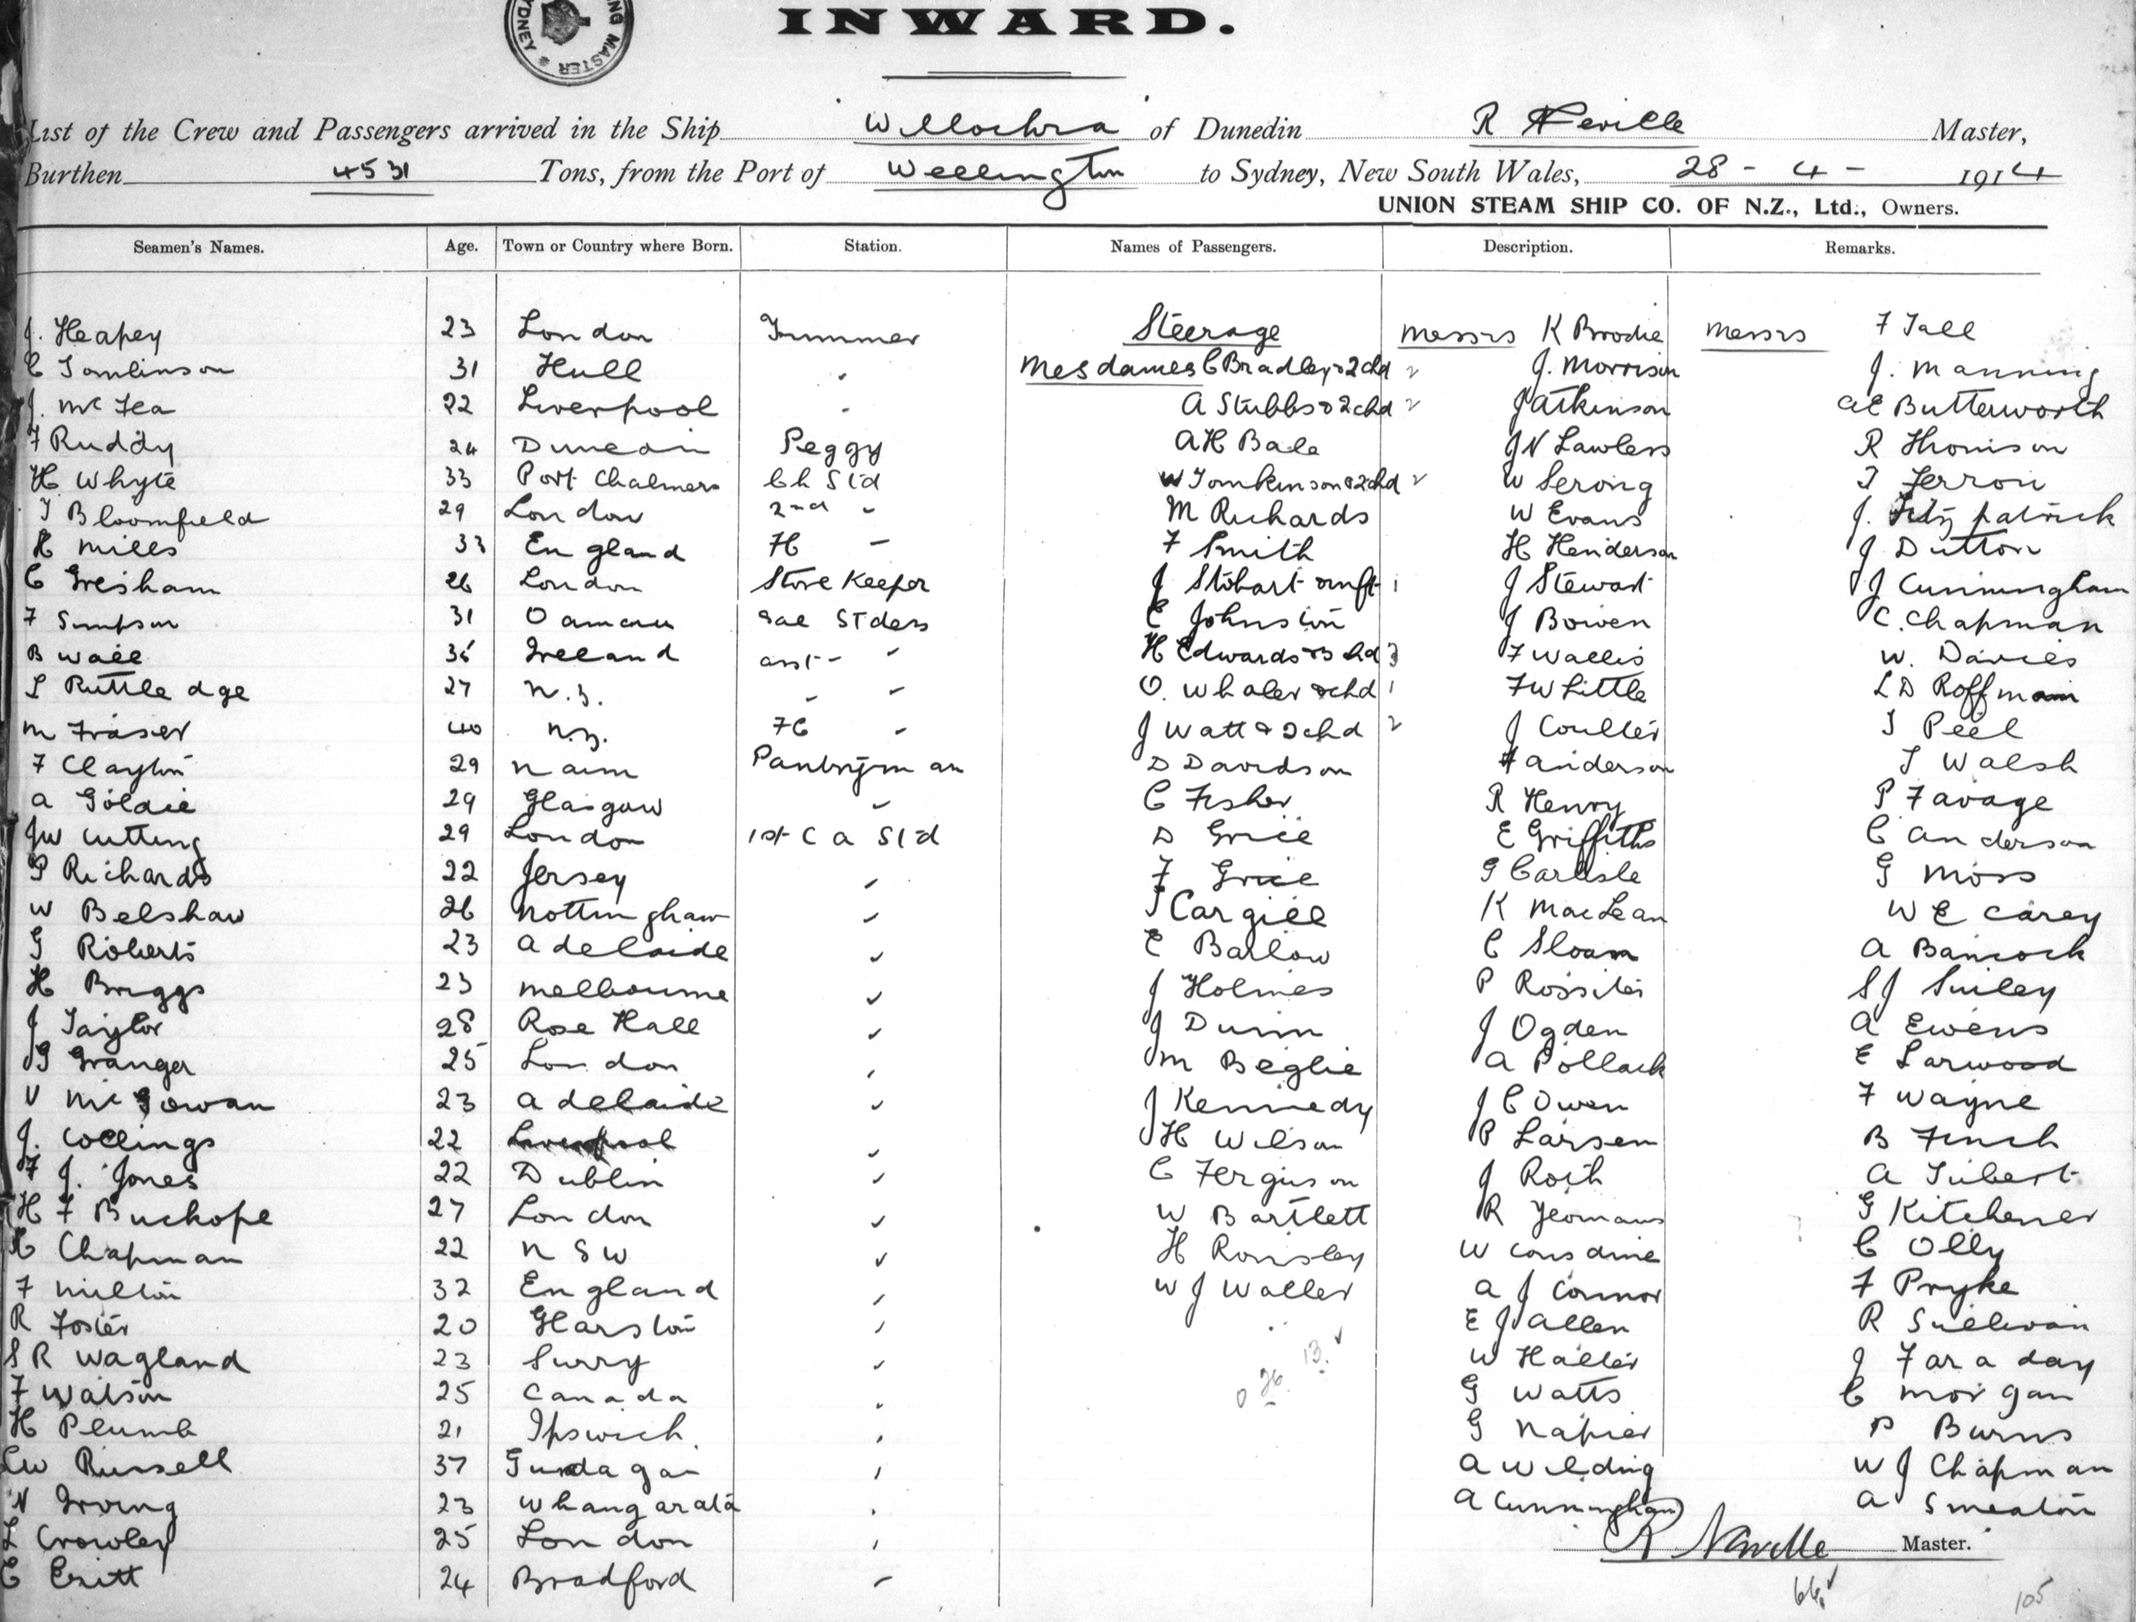 SYDNEY * MASTER
INWARD.
List of the Crew and Passengers arrived in the Ship Willochra of Dunedin R Neville Master,
Burthen 4531 Tons, from the Port of Wellington to Sydney, New South Wales, 28 - 4 - 1914
UNION STEAM SHIP CO. OF N.Z., Ltd., Owners.
Seamen's Names. Age. Town or Country where Born. Station. Names of Passengers. Description. Remarks.
J. Heapey 23 London Trimmer Steerage Messrs K Brodie Messrs F Tall
C Tomlinson 31 Hull " Mesdames C Bradley & 2 chd 2 J. Morrison J. Manning
J. McFea 22 Liverpool " A Stubbs & 2 chd 2 J Atkinson AE Butterworth
F Ruddy 24 Dunedin Peggy AH Bale JN Lawless R Thomson
H Whyte 33 Port Chalmers Ch Std W Tomkinson & 2 chd 2 W Serong T Ferron
T Bloomfield 29 London 2nd " M Richards W Evans J. Fitzpatrick
H Mills 33 England FC " F Smith H Henderson J Dutton
C Gresham 26 London Store Keeper J Stobart & inft 1 J Stewart J Cunningham
F Simpson 31 Oamaru Sal Stdess C Johnston J Bowen C. Chapman
B Wall 36 Ireland asst " " H Edwards & 3 chd 3 F Wallis W. Davies
L Ruttledge 27 N.Z. " " O. Whaler & chd 1 FW Little LD Roffman
M Fraser 40 N.Z. FC " J Watt & 2 chd 2 J Coulter T Peel
F Clayton 29 Nairn Pantryman D Davidson Anderson T Walsh
A Goldie 29 Glasgow " C Fisher R Henry P Favage
JW Cutting 29 London 1st C a Std D Grice E Griffiths C Anderson
P Richards 22 Jersey " F Grice G Carlisle G Moss
W Belshaw 26 Nottingham " T Cargill K MacLean WE Carey
G Roberts 23 Adelaide " E Barlow C Sloan A Bancock
H Briggs 23 Melbourne " J Holmes P Rossiter SJ Smiley
J Taylor 28 Rose Hall " J Dunn J Ogden A Ewens
G Granger 25 London " M Beglie A Pollack E Larwood
V McGowan 23 Adelaide " J Kennedy J C Owen F Wayne
J. Collings 22 Liverpool " H Wilson P Larsen B Finch
F J. Jones 22 Dublin " C Ferguson J Roth A Tibert
H F Buckope 27 London " W Bartlett R Yeomans G Kitchener
H Chapman 22 NSW " H Ronsley W Consdine C Olly
F Milton 32 England " W J Waller A J Connor F Pryke
R Foster 20 Garston " E J Allen R Sullivan
S R Wagland 23 Surry " 13. W Haller J Faraday
F Watson 25 Canada " 0 26 G Watts C Morgan
H Plumb 21 Ipswich " G Napier P Burns
LW Russell 37 Gundagai " A Wilding W J Chapman
N Irving 23 Whangarata " A Cunningham A Smeaton
L Crowley 25 London " R Neville Master.
C Britt 24 Bradford " 66. 105